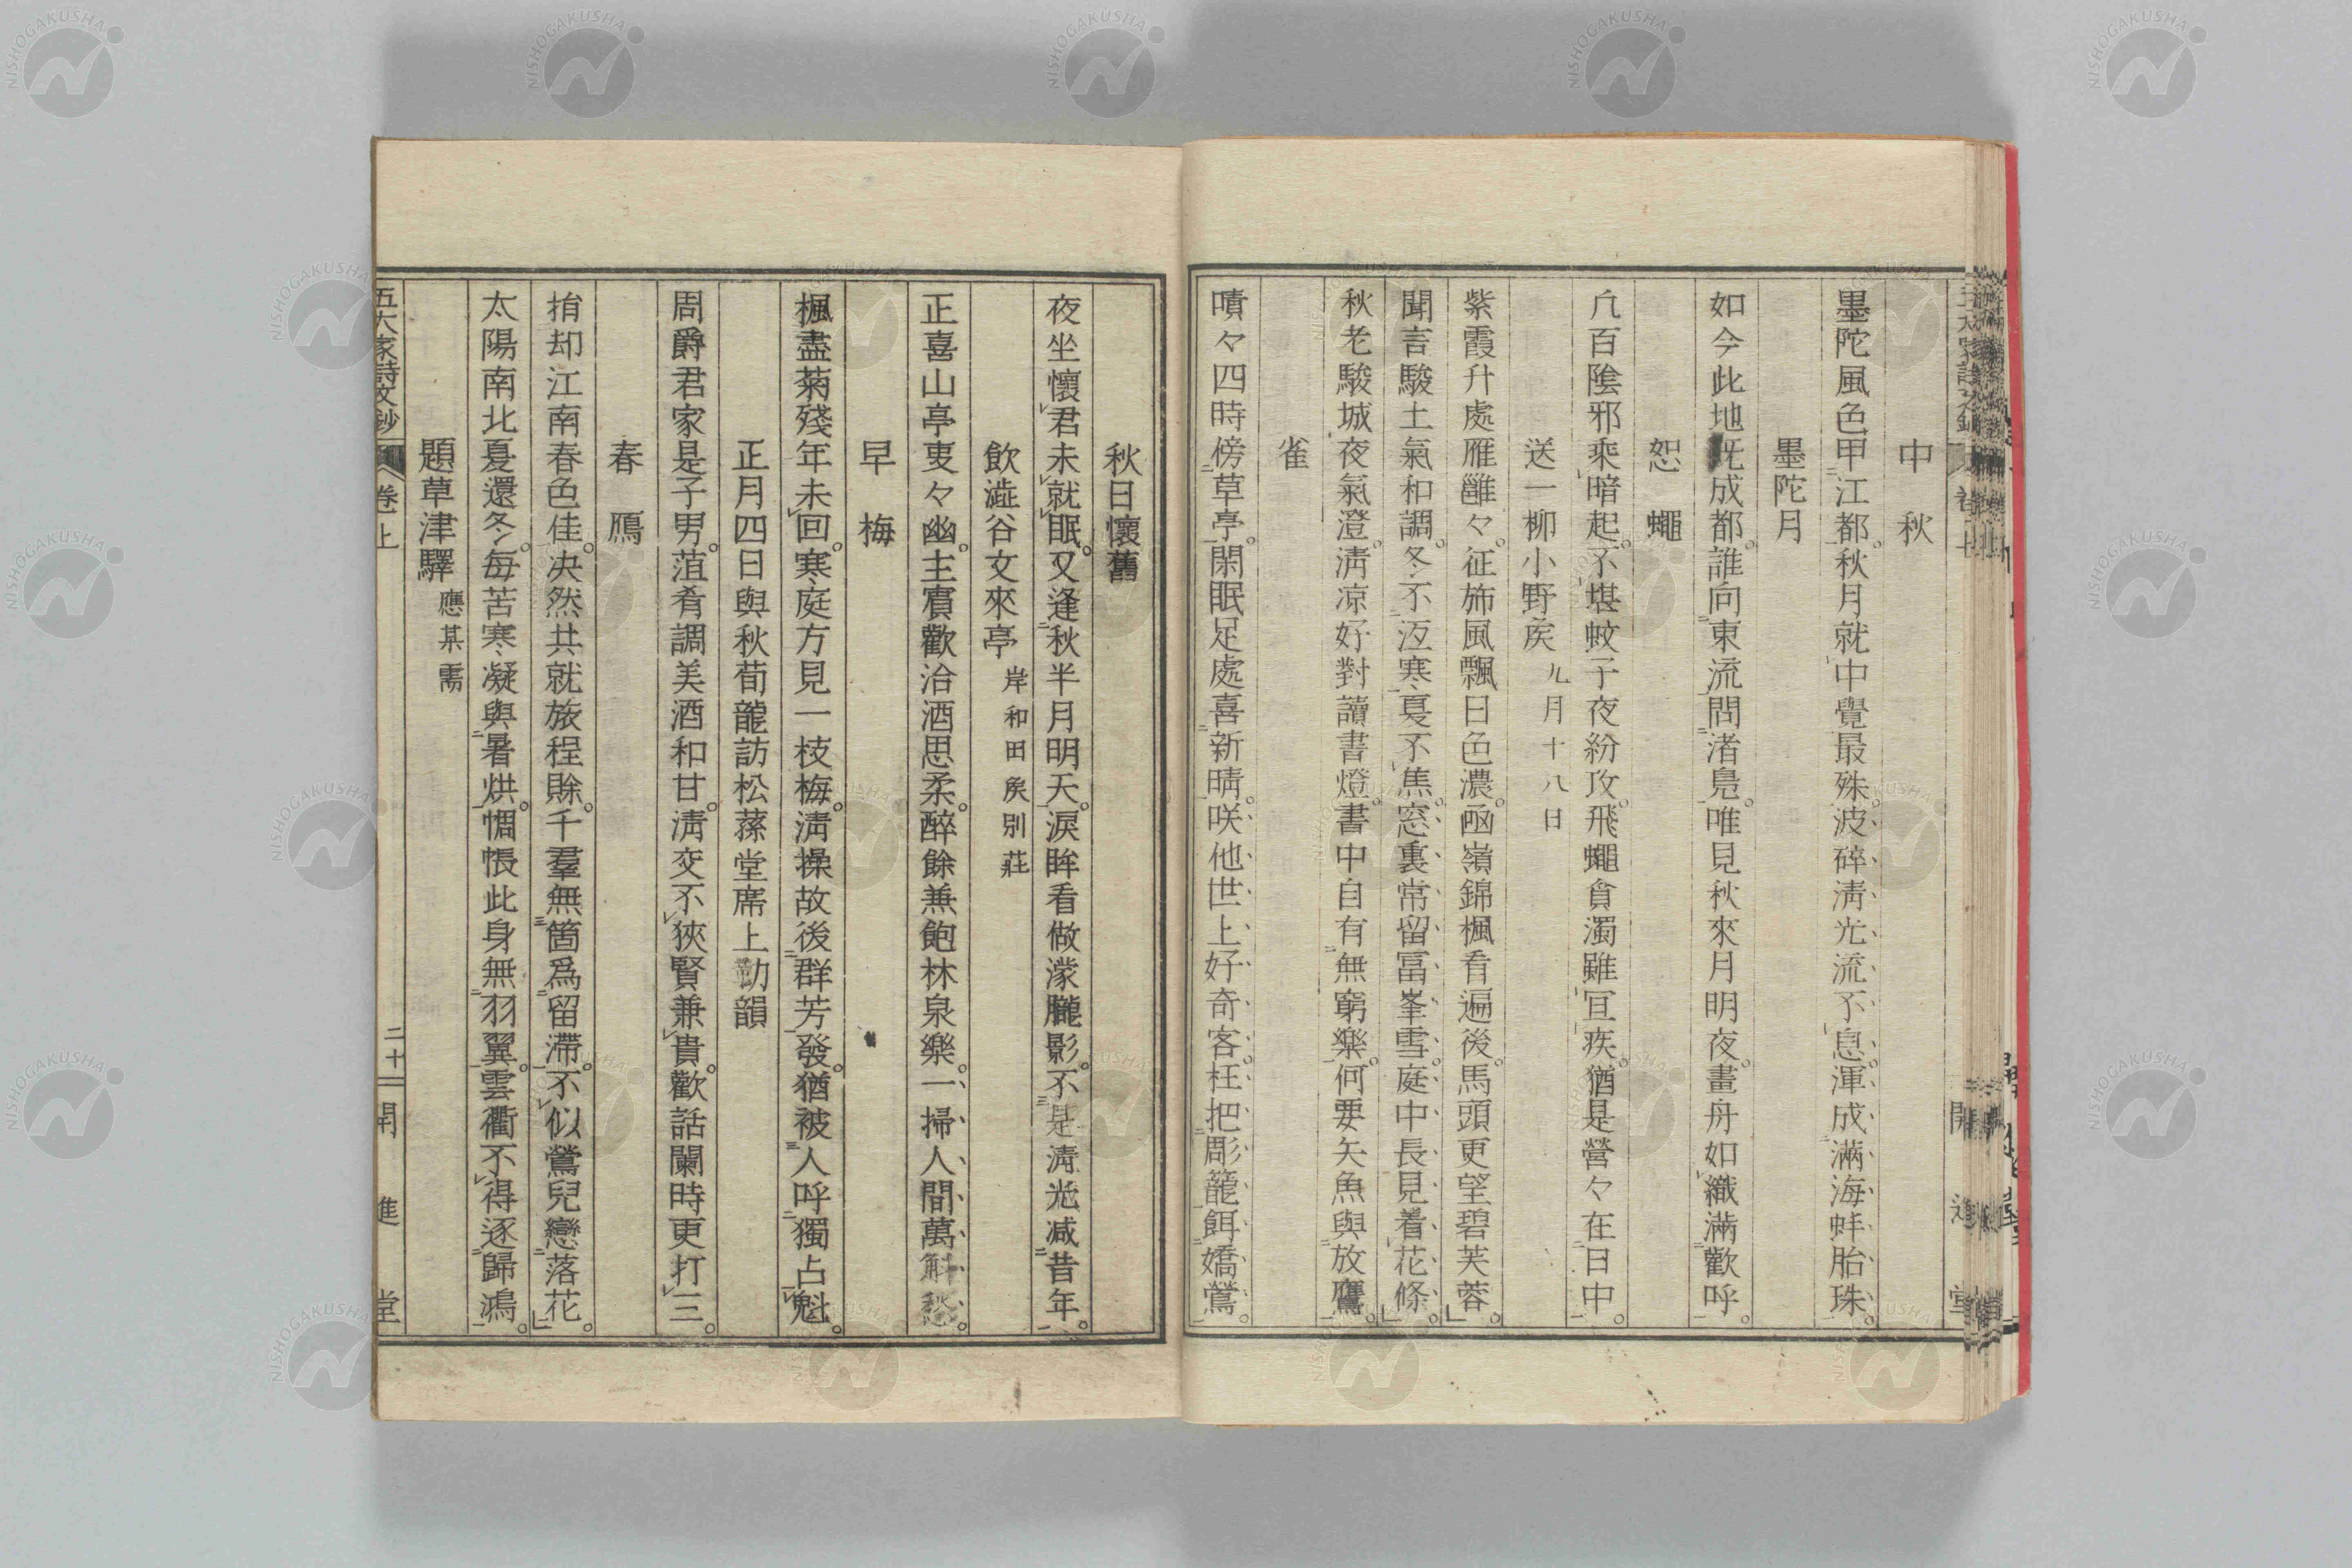 中秋
墨陀風色甲江都秋月就中覺最殊波碎淸光流不息渾成滿海蚌胎珠
墨陀月
如今此地旣成都誰向東流問渚鳧唯見秋來月明夜畫舟如織滿歡呼
恕蠅
凢百陰邪乘暗起不堪蚊子夜紛攻飛蠅貪濁雖冝疾猶是營々在日中
送一柳小野矦 九月十八日
紫霞升處雁雝々征斾風飄日色濃凾嶺錦楓看遍後馬頭更望碧芙蓉
聞言駿土氣和調冬不沍寒夏不焦窓裏常留冨峯雪庭中長見着花條
秋老駿城夜氣澄淸凉好對讀書燈書中自有無窮樂何要矢魚與放鷹
雀
嘖々四時傍草亭閑眠足處喜新晴咲他世上好奇客枉把彫籠餌嬌鶯
秋日懷舊
夜坐懷君未就眠又逢秋半月明天淚眸看做濛朧影不是淸光减昔年
飲澁谷文來亭 岸和田矦别莊
正喜山亭叓々幽主賔歡洽酒思柔醉餘兼飽林泉樂一掃人間萬斛愁
早梅
楓盡菊殘年未回寒庭方見一枝梅淸操故後群芳發猶被人呼獨占魁
正月四日與秋荀龍訪松蓀堂席上勒韻
周爵君家是子男菹肴調美酒和甘淸交不狹賢兼貴歡話闌時更打三
春鴈
捎却江南春色佳决然共就旅程賖千羣無箇爲留滯不似鶯兒戀落花
太陽南北夏還冬每苦寒凝與暑烘惆悵此身無羽翼雲衢不得逐歸鴻
題草津驛 應某需
五大家詩文鈔 卷上 二十 開進堂